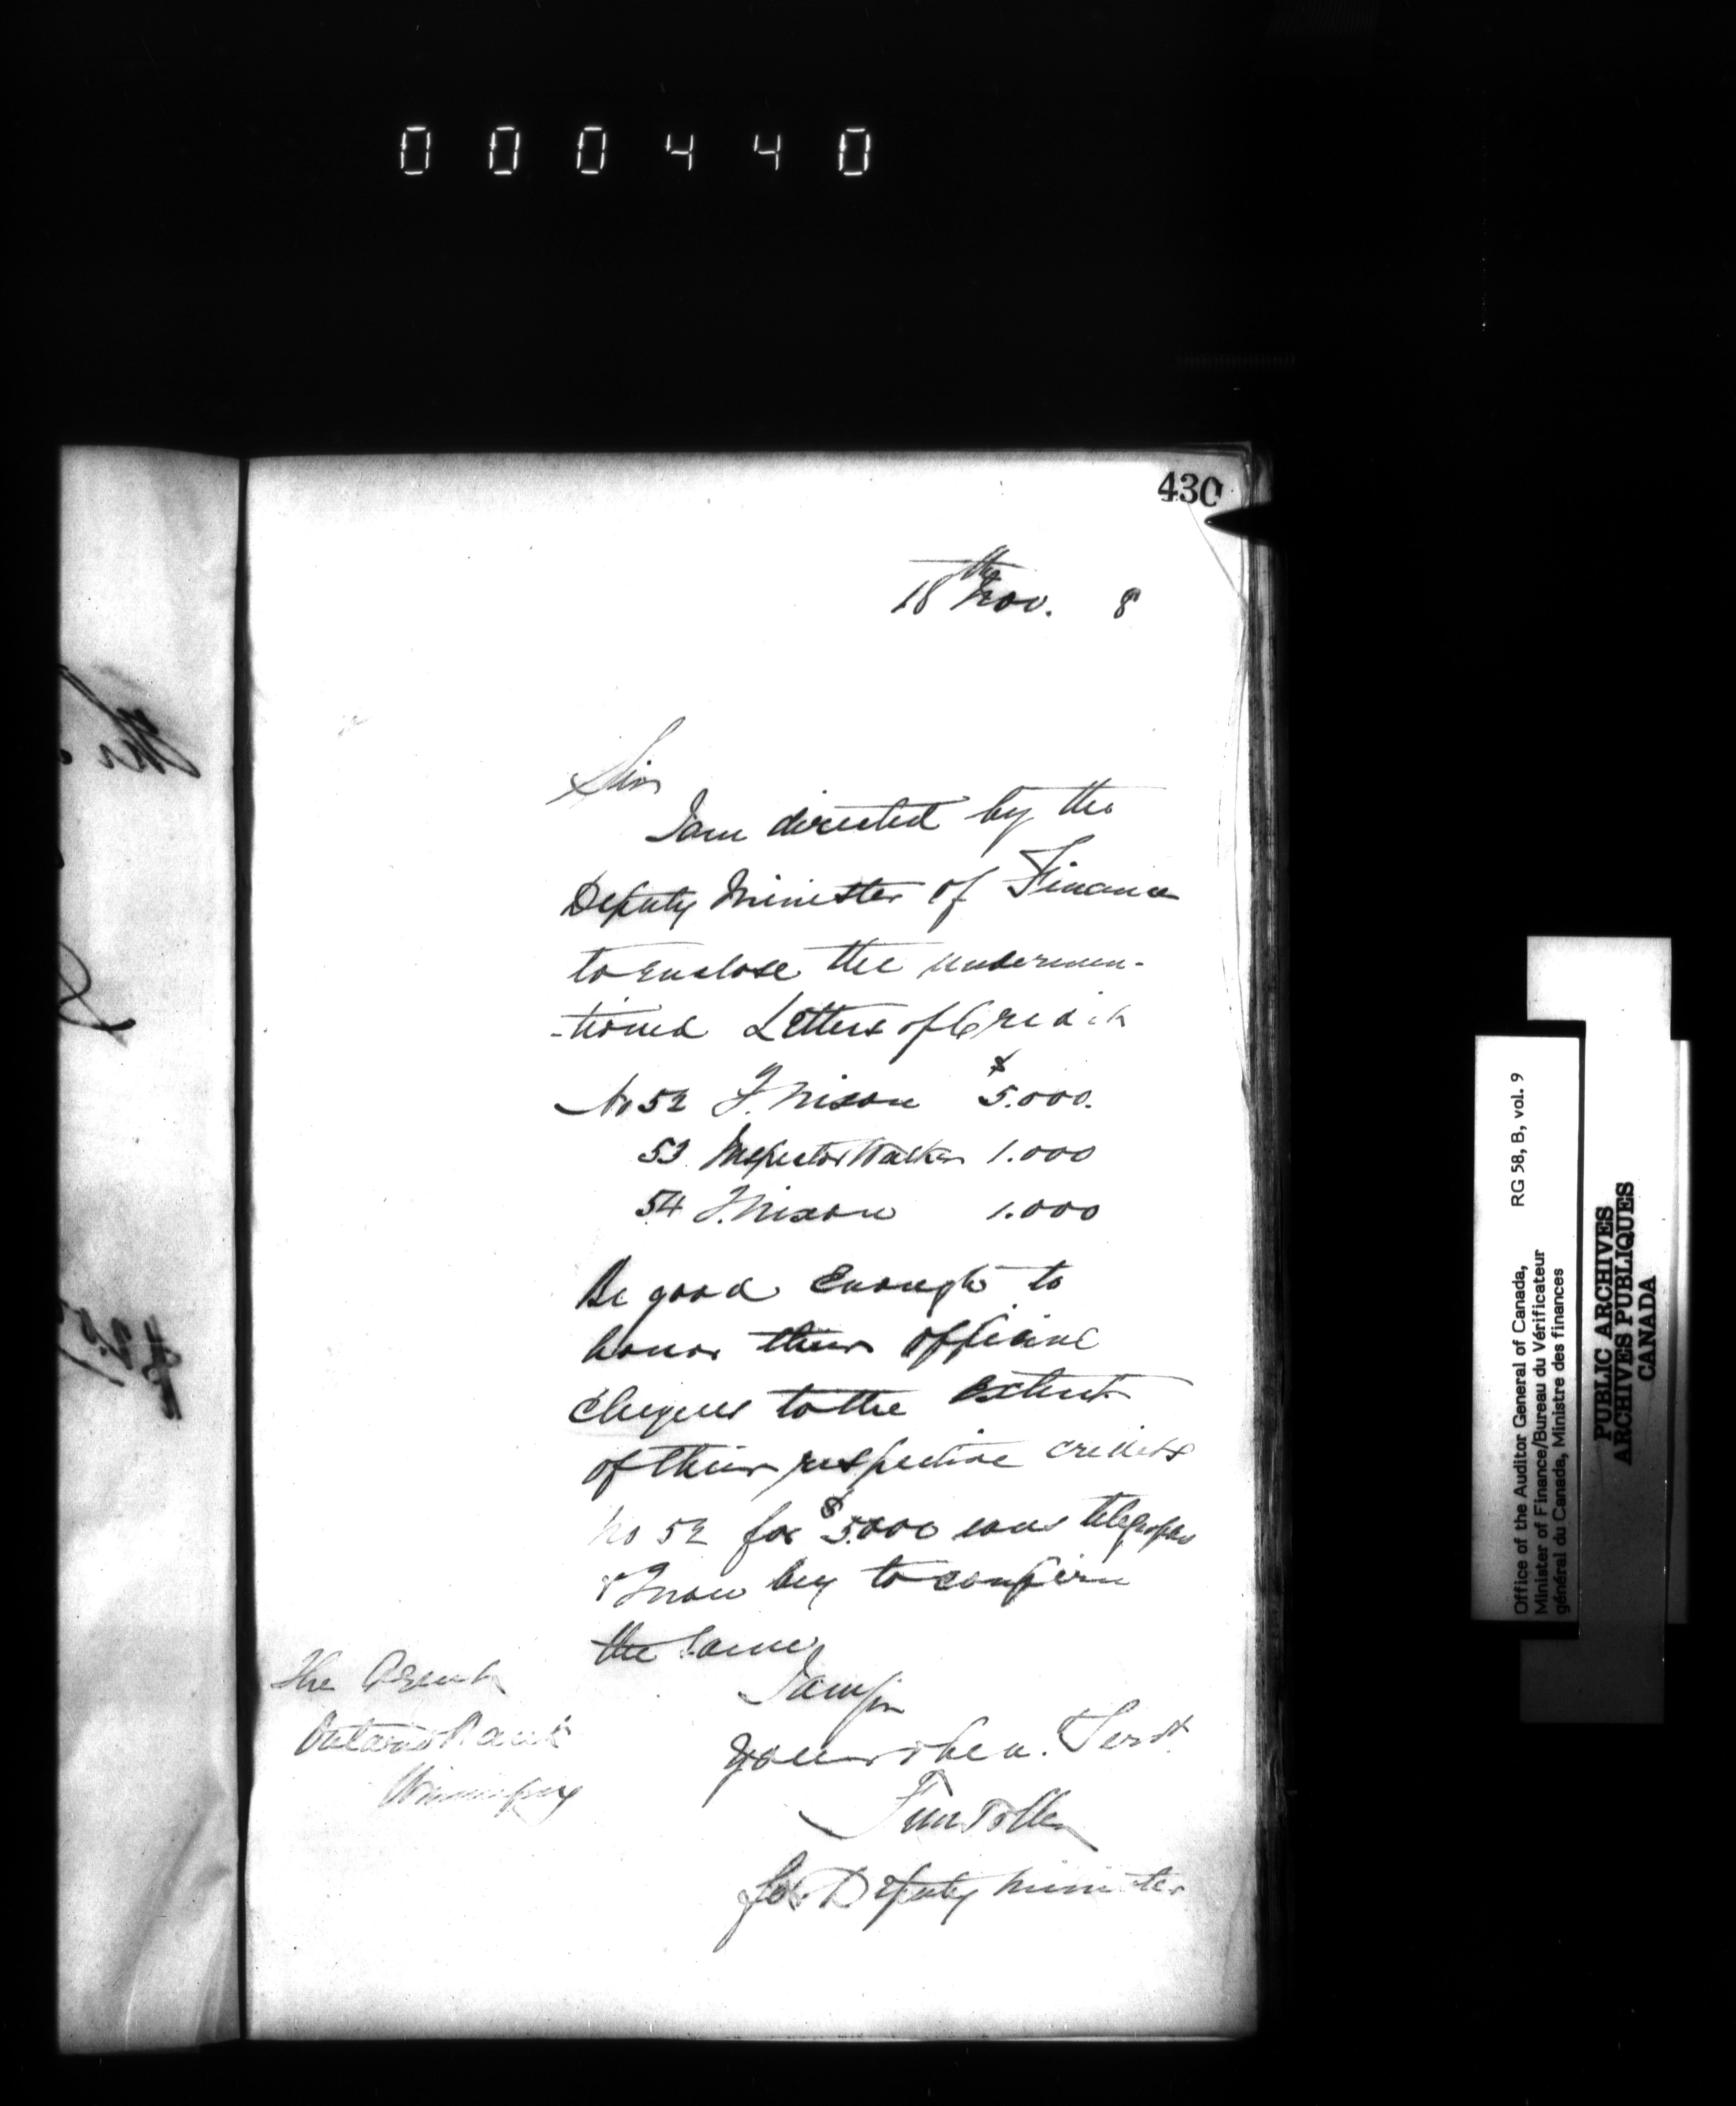 000440
430
18th Nov. 8
Sir
I am directed by the
Deputy Minister of Finance
to enclose the undermen-
-tioned Letters of Credit
No 52 F. Nixon $5.000.
53 Inspector Walker 1.000
54 F. Nixon 1.000
Be good enough to
honor their official
cheques to the extent
of their respective credits
No 52 for $5000 was telegraphed
& I now beg to confirm
the same,
I am Sir
Your obed. Servt
for Deputy Minister
The Agent
Ontario Bank
Winnipeg
Office of the Auditor General of Canada, RG 58, B, vol. 9
Minister of Finance/Bureau du Vérificateur
général du Canada, Ministre des finances
PUBLIC ARCHIVES
ARCHIVES PUBLIQUES
CANADA